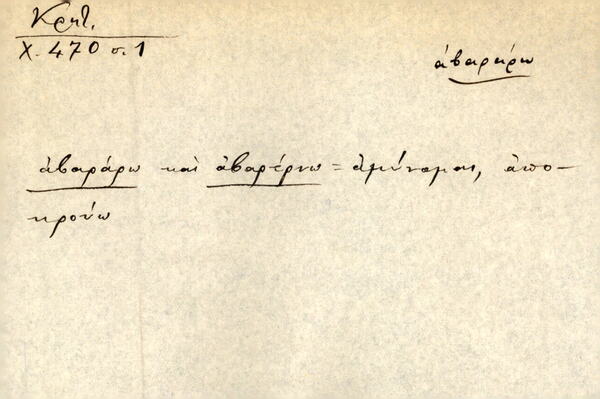 Κρήτ.
Χ. 470 σ. 1
ἀβαράρω
ἀβαράρω καὶ ἀβαρέρνω = ἀμύνομαι, ἀπο-
κρούω